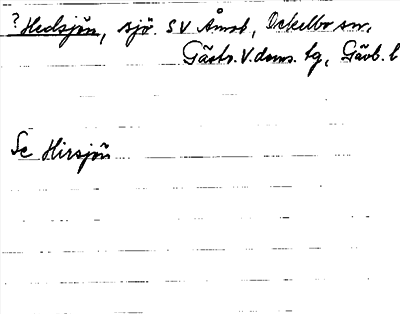 ? Hedsjön, sjö. SV Åmot, Ockelbo sn.
Gästr. V. doms. tg, Gävb. l
Se Hirsjön